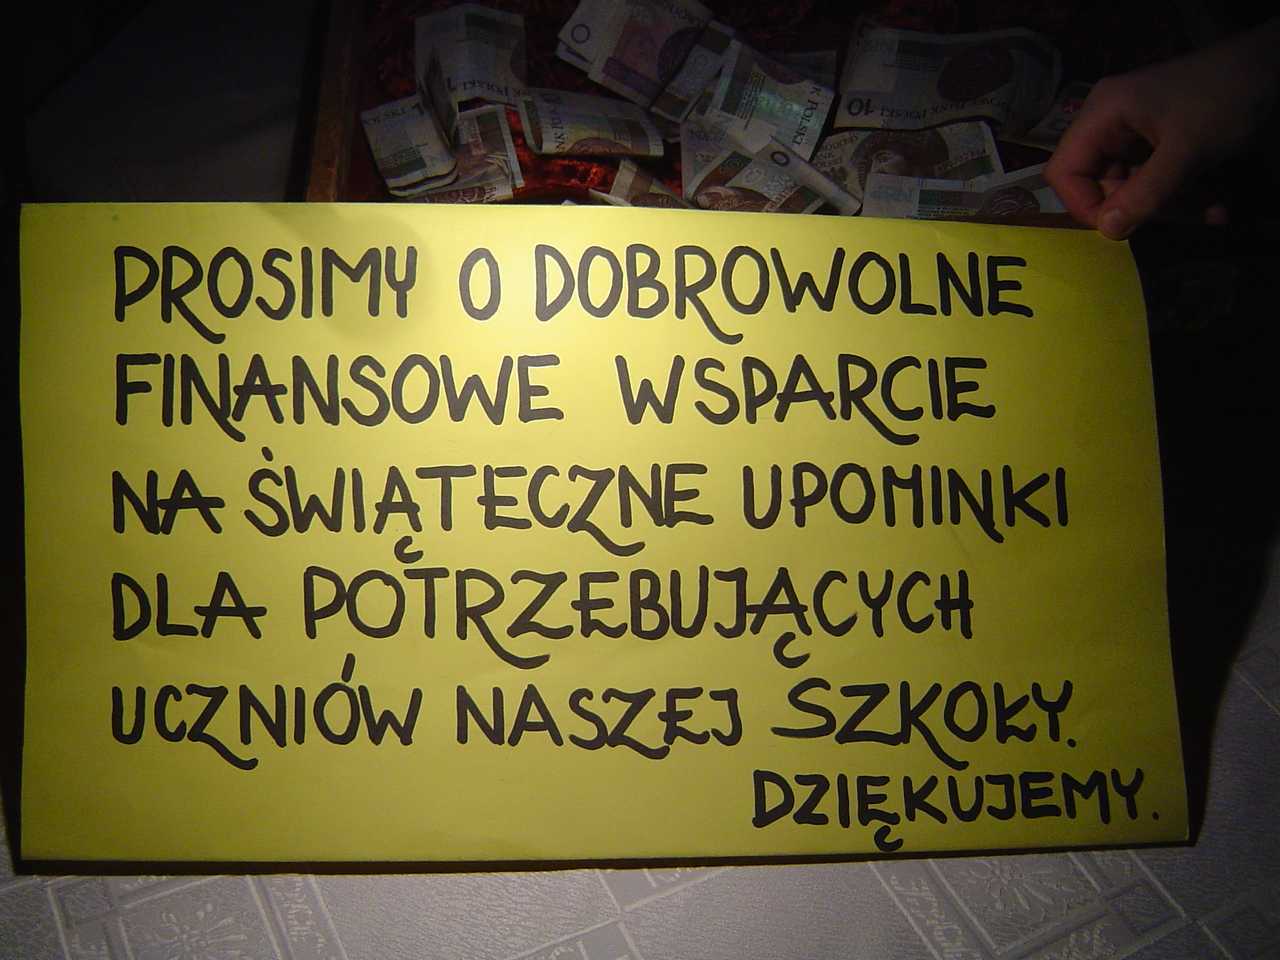 PROSIMY O DOBROWOLNE
FINANSOWE WSPARCIE
NA ŚWIĄTECZNE UPOMINKI
DLA POTRZEBUJĄCYCH
UCZNIÓW NASZEJ SZKOŁY.
DZIĘKUJEMY.
10